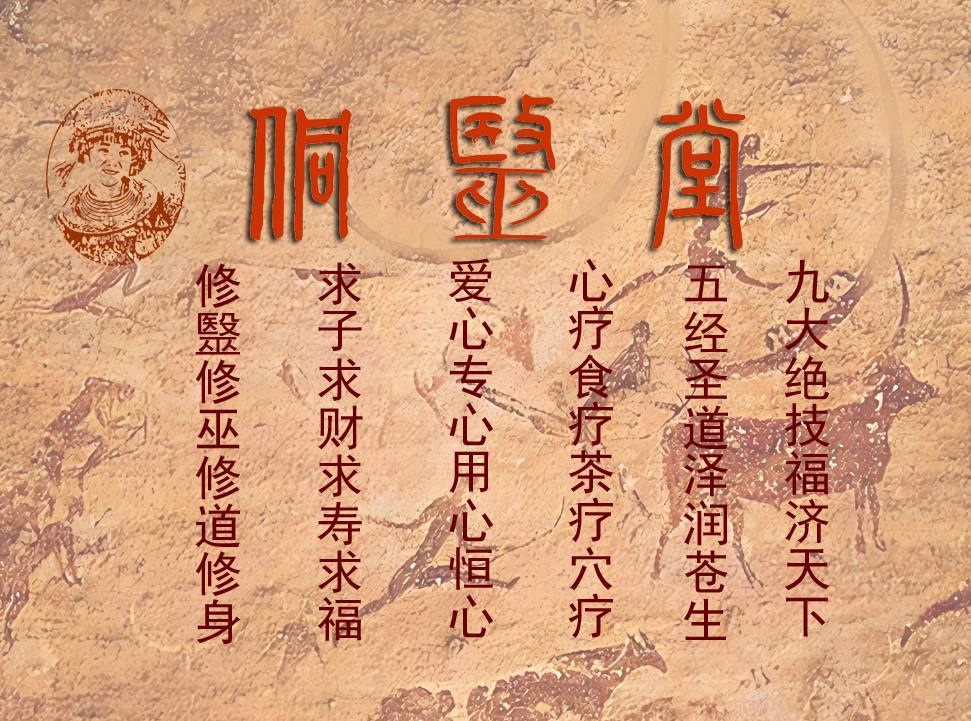 侗毉堂
九大绝技福济天下
五经圣道泽润苍生
心疗食疗茶疗穴疗
爱心专心用心恒心
求子求财求寿求福
修毉修巫修道修身